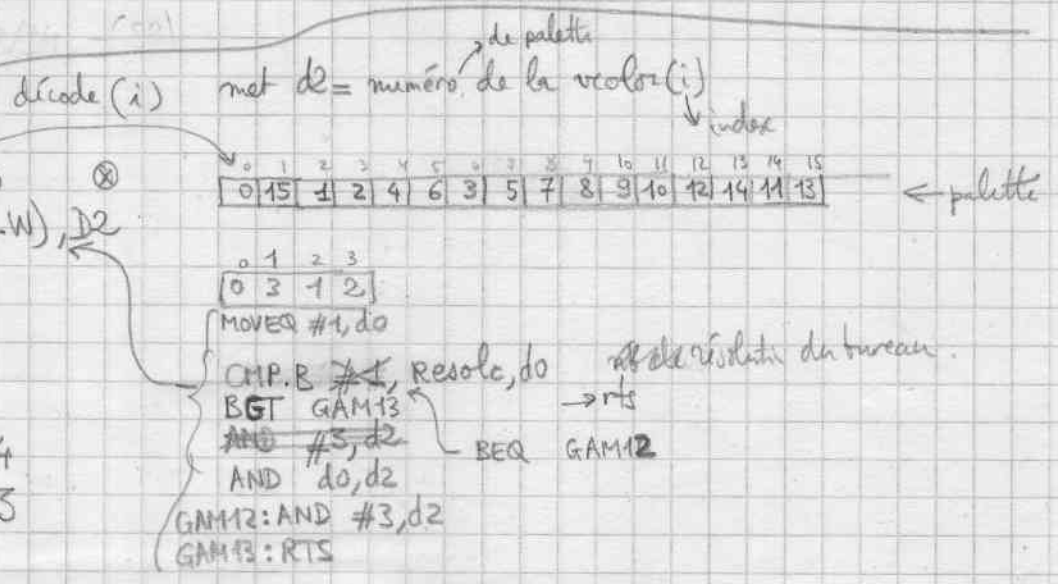 de palette
décode (i) met d2 = numéro de la vcolor (i)
index
0 1 2 3 4 5 6 7 8 9 10 11 12 13 14 15
0 15 1 2 4 6 3 5 7 8 9 10 12 14 11 13 ← palette
.W), D2
0 1 2 3
0 3 1 2
MOVEQ #1, d0
CMP.B #1, Resolc, d0 de résolution du bureau.
BGT GAM13 → rts
AND #3, d2 BEQ GAM12
4 AND d0, d2
3
GAM12: AND #3, d2
GAM13: RTS